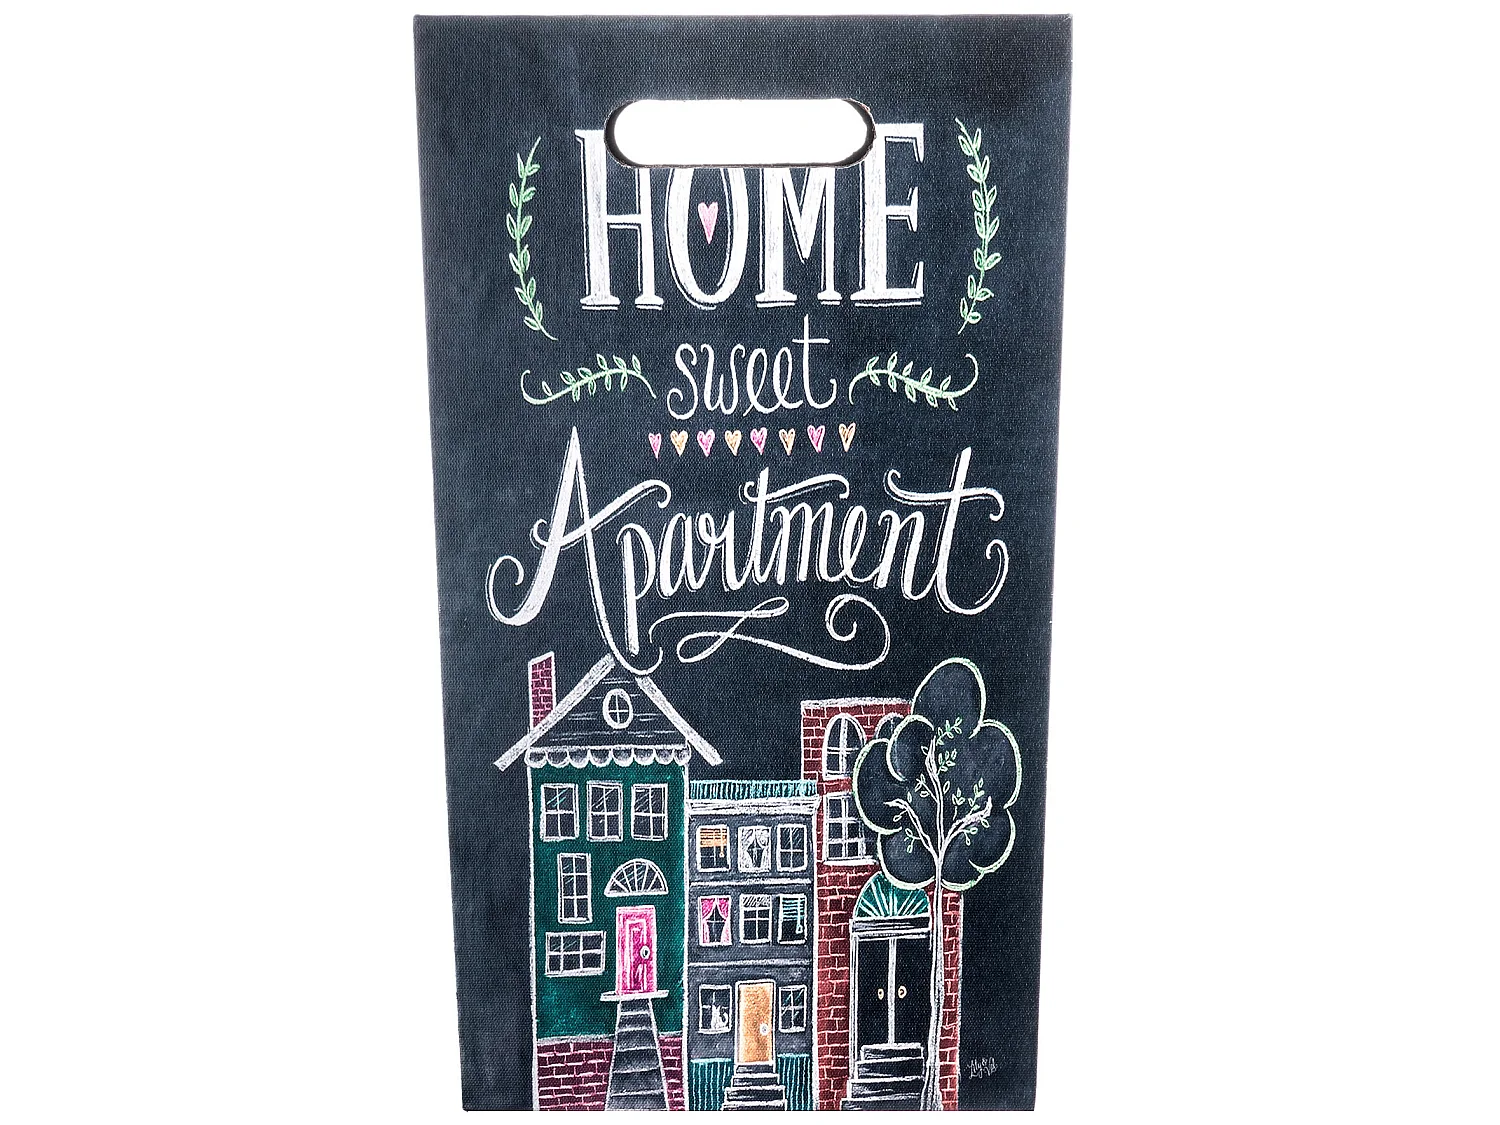 HOME
sweet
Apartment
Lily & Val